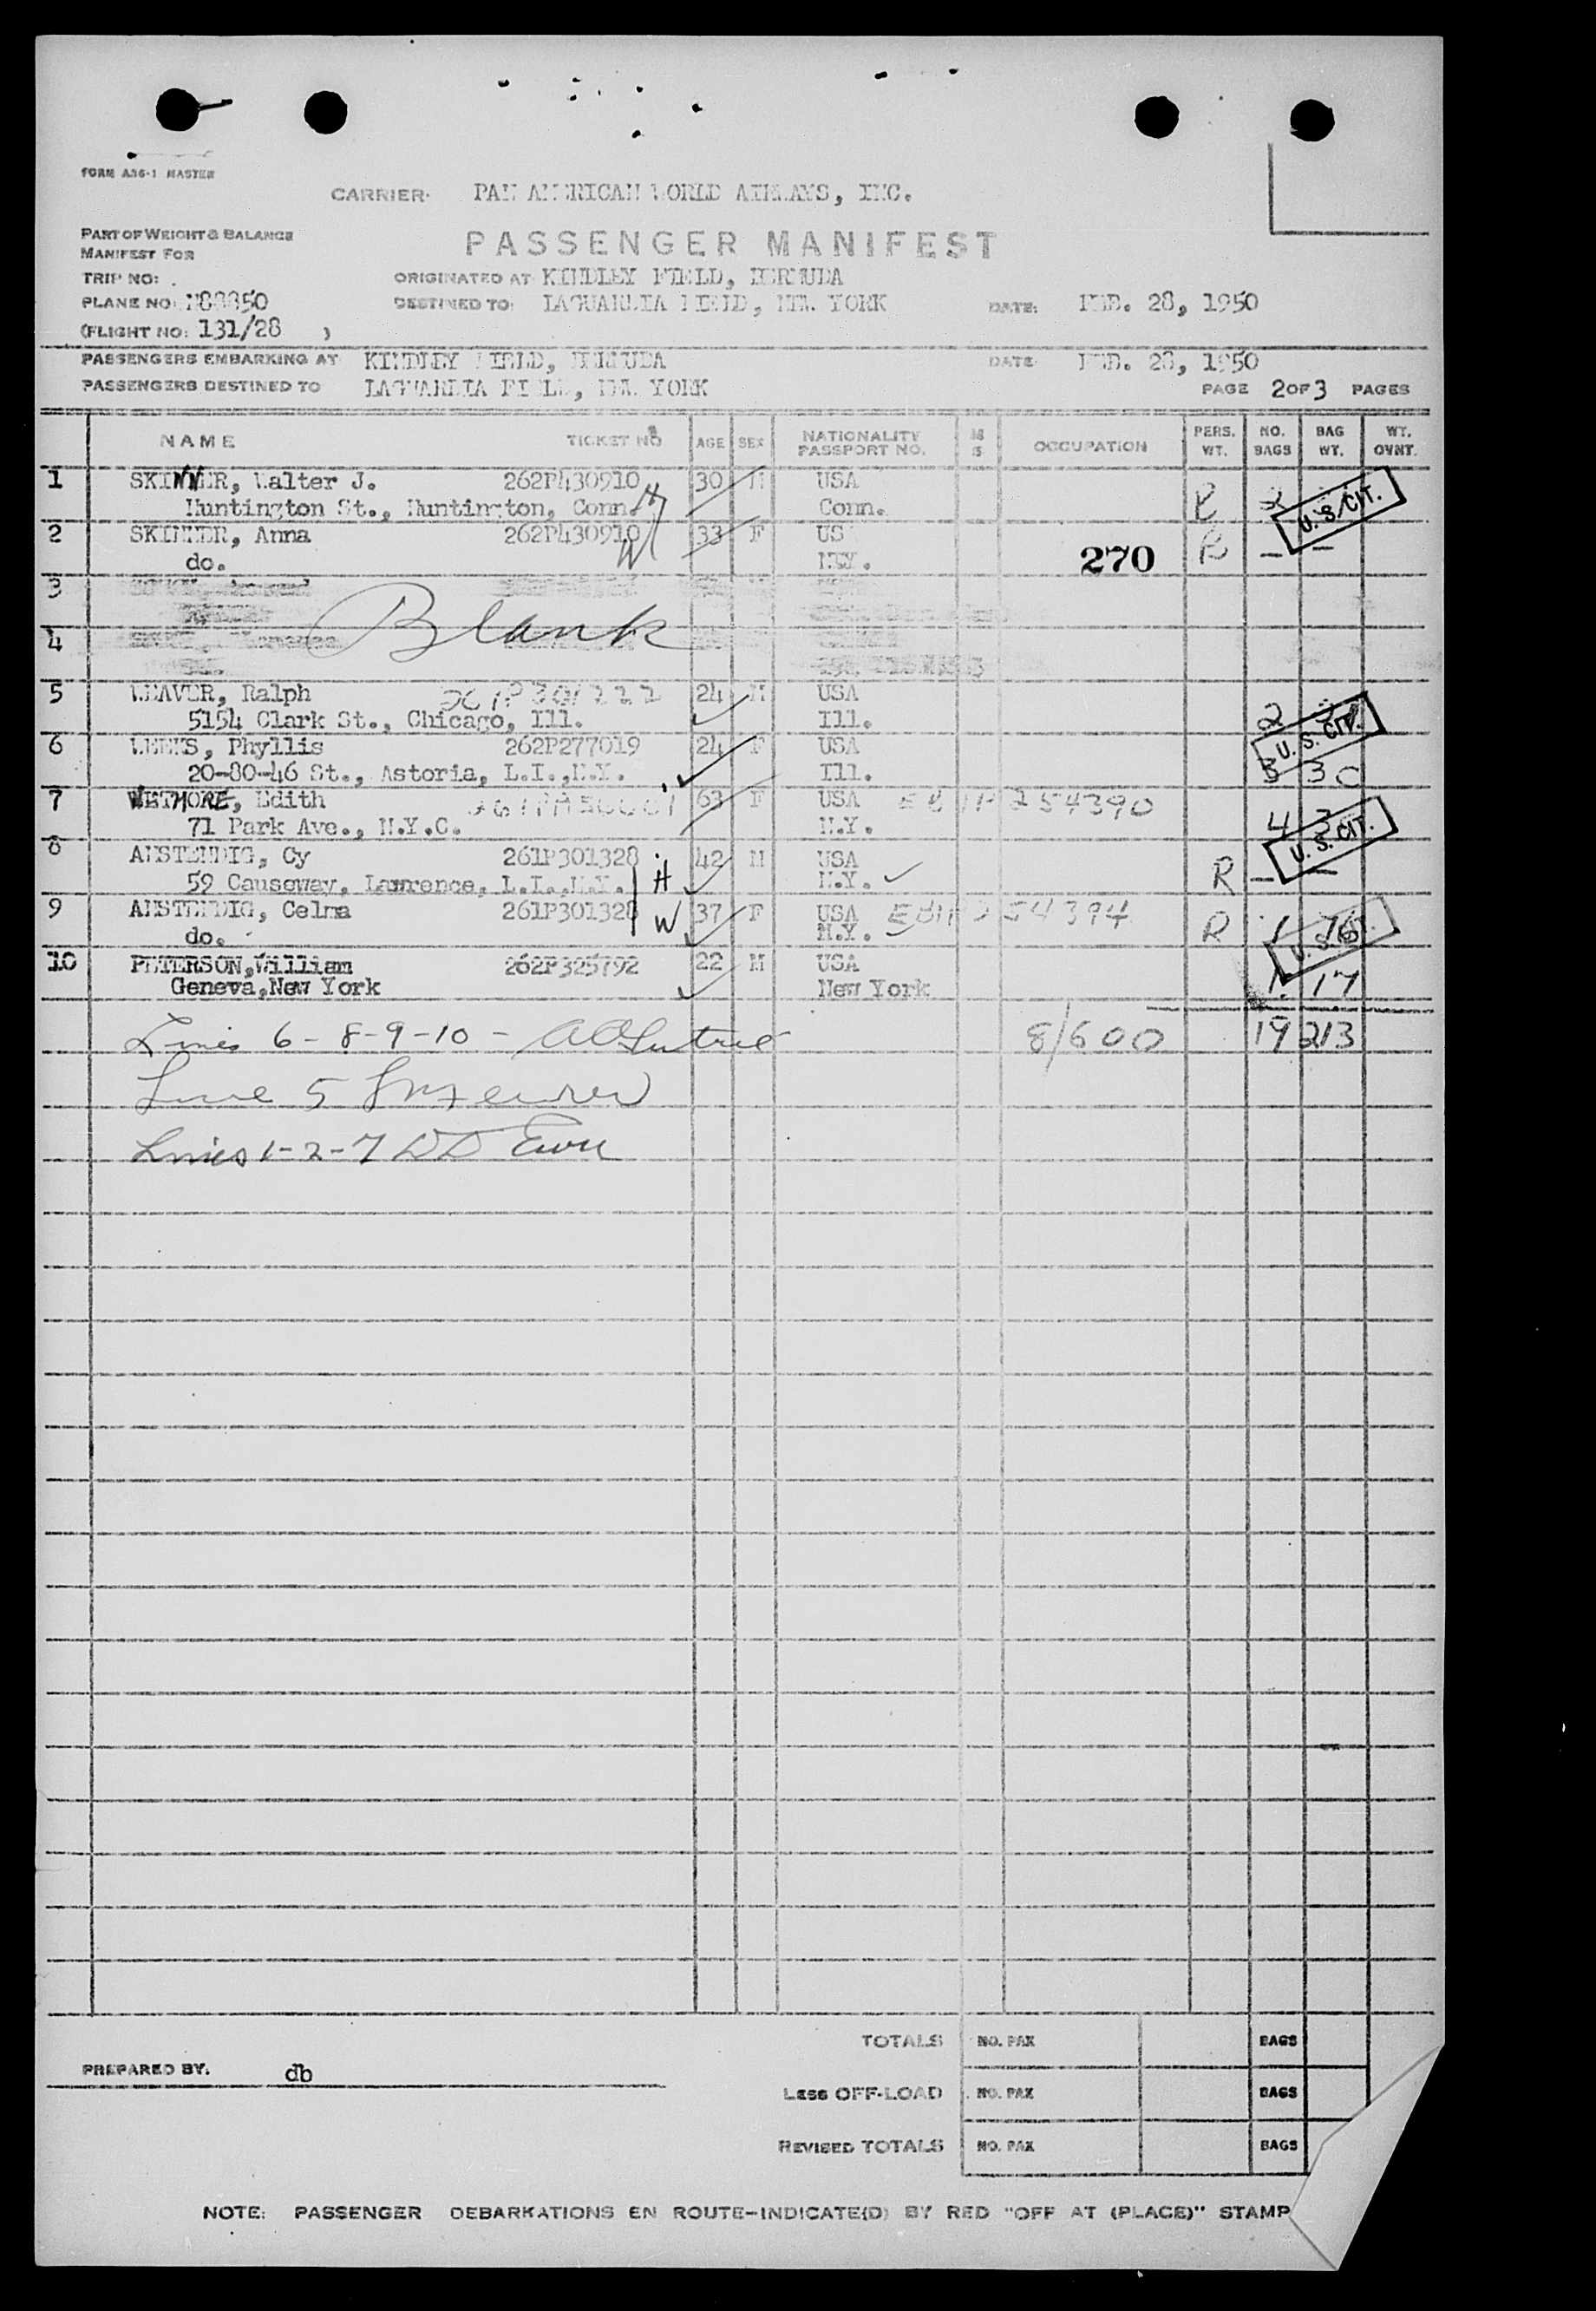 FORM A36-1 MASTER
CARRIER: PAN AMERICAN WORLD AIRWAYS, INC.
PART OF WEIGHT & BALANCE
MANIFEST FOR
PASSENGER MANIFEST
TRIP NO: ORIGINATED AT KINDLEY FIELD, BERMUDA
PLANE NO: N88850 DESTINED TO: LAGUARDIA FIELD, NEW YORK DATE: FEB. 28, 1950
(FLIGHT NO: 131/28 )
PASSENGERS EMBARKING AT KINDLEY FIELD, BERMUDA DATE FEB. 28, 1950
PASSENGERS DESTINED TO LAGUARDIA FIELD, NEW YORK PAGE 2 OF 3 PAGES
NAME TICKET NO AGE SEX NATIONALITY PASSPORT NO. M S OCCUPATION PERS. WT. NO. BAGS BAG WT. WT. OVNT.
1 SKINNER, Walter J. 262P430910 30 M USA
Huntington St., Huntington, Conn. H Conn. R 2 U.S. CIT.
2 SKINNER, Anna 262P430910 33 F US
do. W N.Y. 270 R — —
3
4 Blank
5 WEAVER, Ralph 261P301222 24 M USA
5154 Clark St., Chicago, Ill. Ill. 2
6 WEEKS, Phyllis 262P277019 24 F USA U.S. CIT.
20-80-46 St., Astoria, L.I.,N.Y. Ill. 3 30
7 WETMORE, Edith 63 F USA EBHP254390
71 Park Ave., N.Y.C. N.Y. 4
8 ANSTENDIG, Cy 261P301328 42 M USA U.S. CIT.
59 Causeway, Lawrence, L.I.,N.Y. H N.Y. R — —
9 ANSTENDIG, Celma 261P301328 37 F USA EBHP254394
do. W N.Y. R 1 16
10 PETERSON,William 262P325792 22 M USA U.S. CIT.
Geneva,New York New York 1 17
Lines 6-8-9-10 - 8/600 19 213
Line 5
Lines 1-2-7
TOTALS NO. PAX BAGS
PREPARED BY: db
LESS OFF-LOAD NO. PAX BAGS
REVISED TOTALS NO. PAX BAGS
NOTE: PASSENGER DEBARKATIONS EN ROUTE-INDICATE(D) BY RED "OFF AT (PLACE)" STAMP